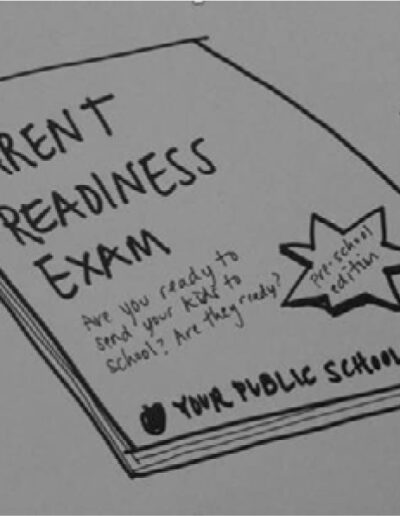 ARENT
READINESS
EXAM
Are you ready to
send your kids to
school? Are they ready?
Pre-school
edition
YOUR PUBLIC SCHOOL